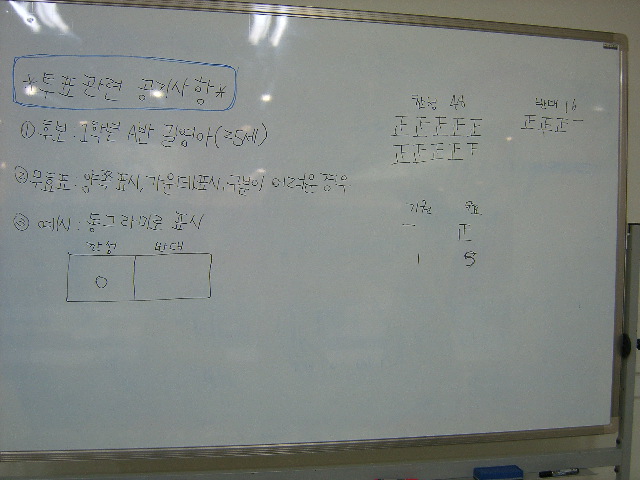 *투표 관련 공지사항*
① 후보: 1학년 A반 김영아(25세)
② 무효표: 양쪽표시, 가운데표시, 구분이 어려운 경우
③ 예시: 동그라미로 표시
찬성 반대
○
찬성 48
正正正正正
正正正正
반대 16
正正正一
기권 무효
一 正
1 5